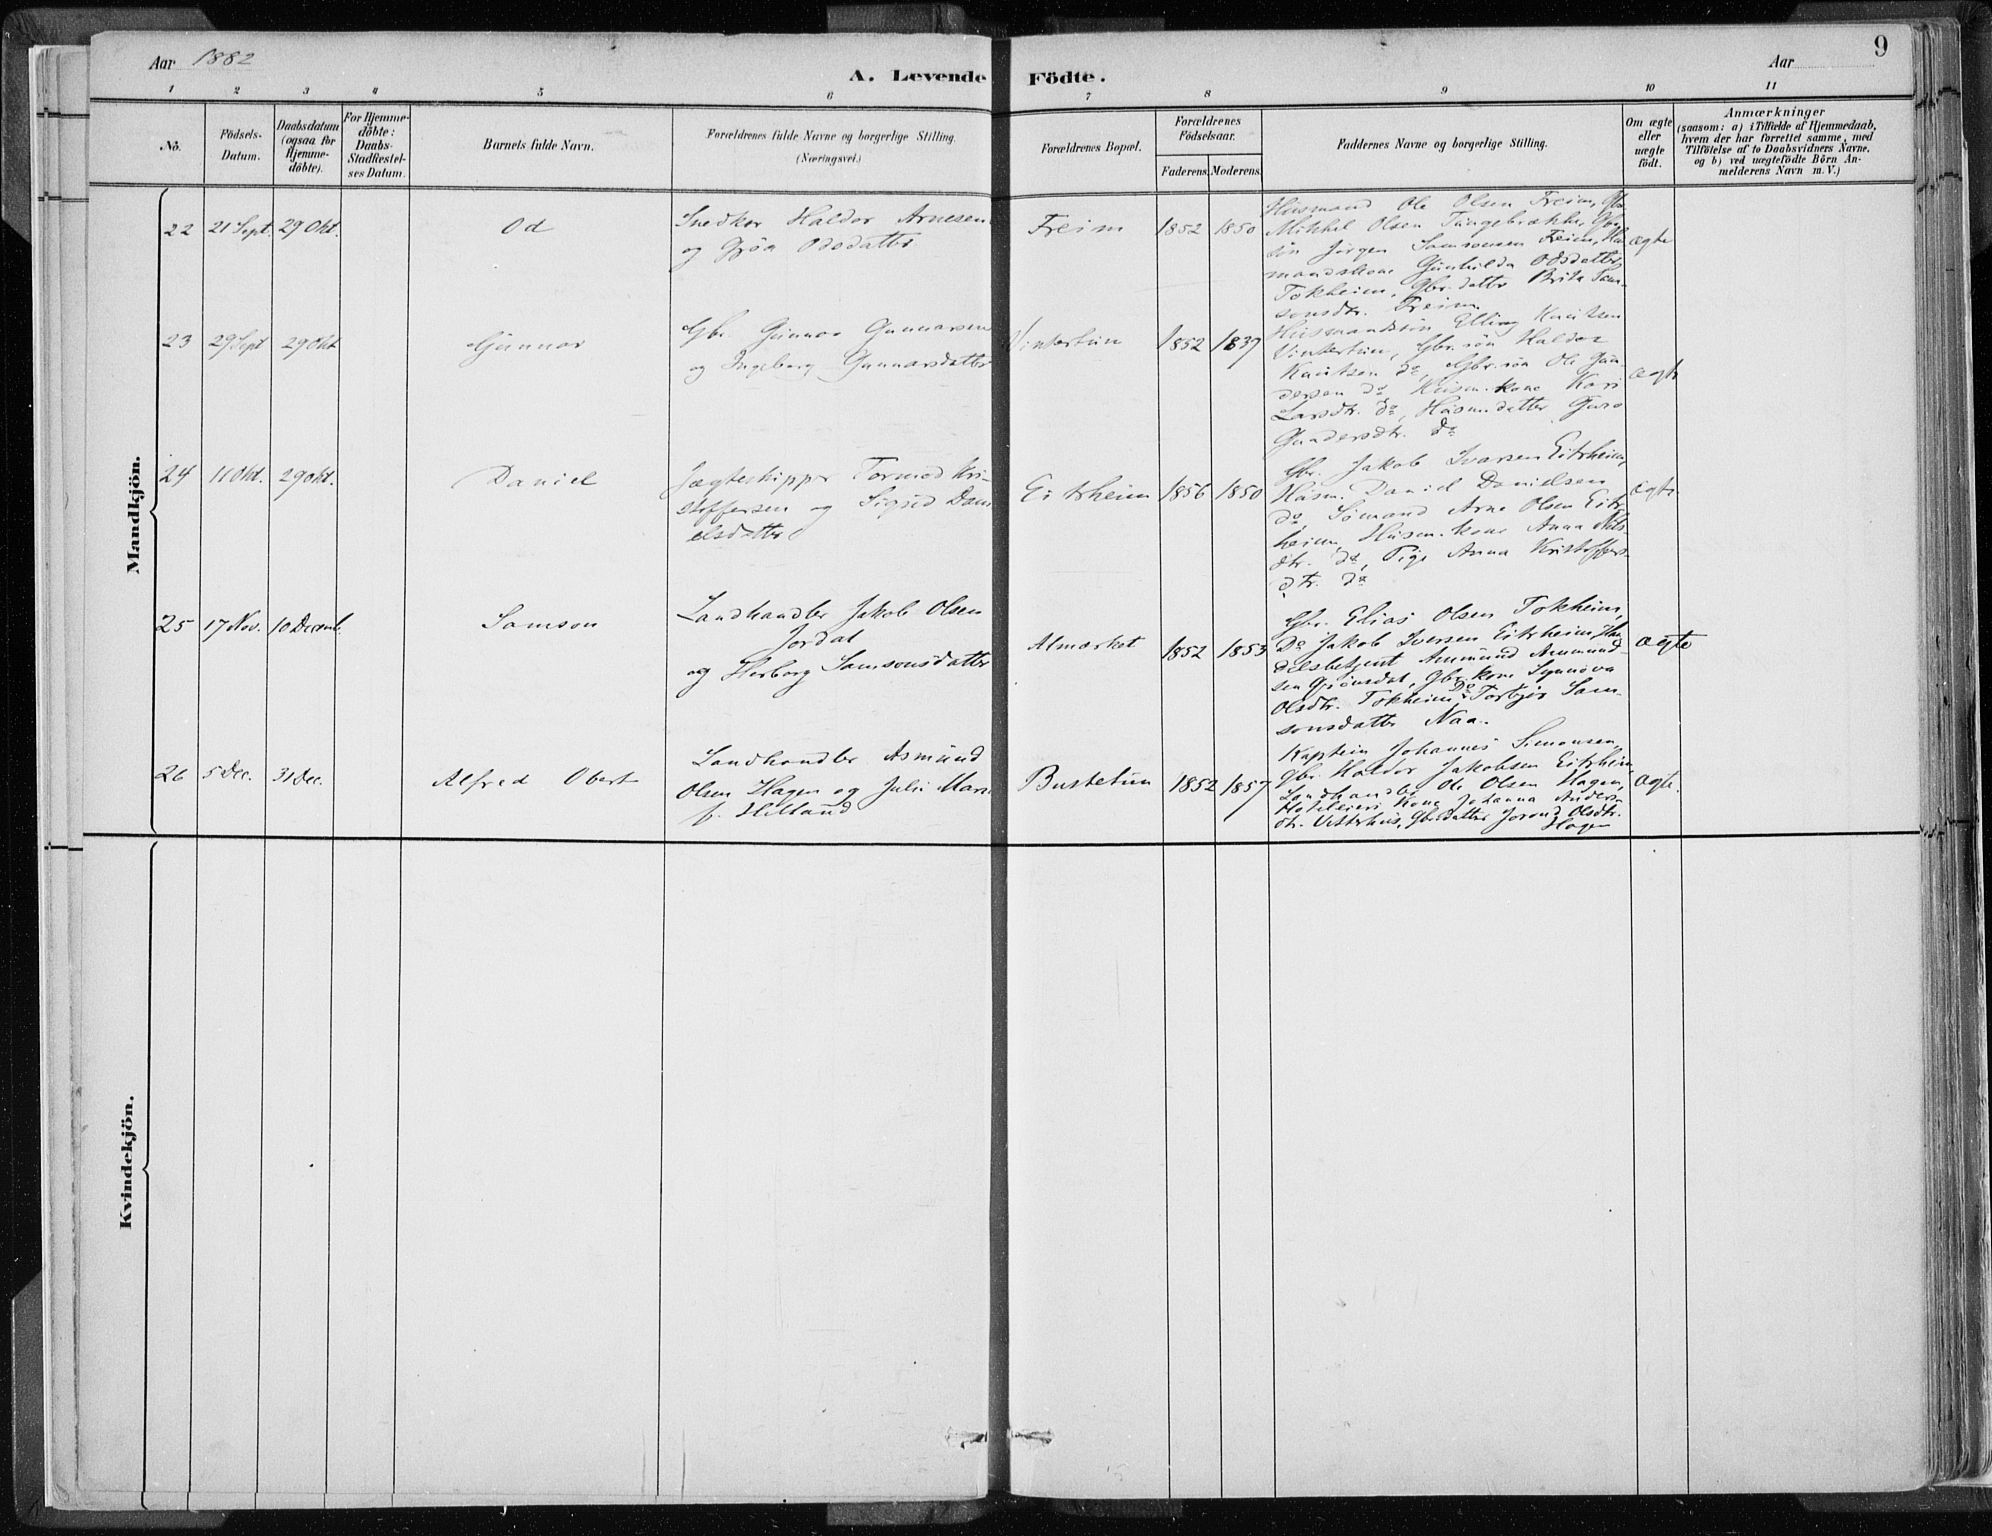 Aar 1882
A. Levende Födte.
Aar
9
1 2 3 4 5 6 7 8 9 10 11
No.
Födsels-
Datum.
Daabsdatum
(ogsaa for
Hjemme-
döbte).
For Hjemme-
döbte:
Daabs-
Stadfæstel-
ses Datum.
Barnets fulde Navn.
Forældrenes fulde Navne og borgerlige Stilling.
(Næringsvei.)
Forældrenes Bopæl.
Forældrenes
Födselsaar.
Faderens. Moderens.
Faddernes Navne og borgerlige Stilling.
Om ægte
eller
uægte
födt.
Anmærkninger
(saasom: a) i Tilfælde af Hjemmedaab,
hvem der har forrettet samme, med
Tilföielse af to Daabsvidners Navne,
og b) ved uægtefödte Börn An-
melderens Navn m. V.)
Mandkjön.
22 21 Sept. 29 Okt.
Od
Snedker Haldor Arnesen
og Gjöa Odsdatter
Freim
1852 1850
Husmand Ole Olsen Freim, Gbr.
Mikkel Olsen Tungebrække, Gbr.
sön Jörgen Samsonsen Freim, Hus
mandskone Gunhilda Odsdatter
Tokheim, Gbr. datter Brita Sam-
sonsdtr. Freim
ægte
23 29 Sept 29 Okt
Gunnar
Gbr. Gunnar Gunnarsen
og Ingeborg Gunnarsdatter
Vintertun
1852 1839
Husmandssön Elling Knutsen
Vintertun, Gbr. sön Haldor
Knutsen do, Gbr. sön Ole Gun
dersen do, Husm. kone Kari
Larsdtr. do, Husm. datter Guro
Gundersdtr. do
ægte
24 11 Okt. 29 Okt.
Daniel
Jægteskipper Tormod Kri-
stoffersen og Sigrid Dani
elsdatter
Eitrheim
1856 1850
Gbr. Jakob Ivarsen Eitrheim,
Husm. Daniel Danielsen
do, Sömand Arne Olsen Eitr
heim, Husm. kone Anna Nils-
dtr. do, Pige Anna Kristoffers-
dtr. do
ægte
25 17 Nov. 10 Decemb.
Samson
Landhandler Jakob Olsen
Jordal
og Herborg Samsonsdatter
Almærket
1852 1853
Gbr. Elias Olsen Tokheim,
Do Jakob Iversen Eitrheim, Han
delsbetjent Ammund Ammund-
sen Grönsdal, Gbr. kone Synnöva
Olsdtr. Tokheim, Do Torbjör Sam-
sonsdatter Naa.
ægte
26 5 Dec. 31 Dec.
Alfred Obert
Landhandler Asmund
Olsen Hagen og Julie Marie
f. Helland
Bustetun
1852 1857
Kaptein Johannes Simonsen,
Gbr. Haldor Jakobsen Eitrheim,
Landhandler Ole Olsen Hagen,
Hoteleiers Kone Johanna Anders-
dtr. Vetterhus, Gbr. datter Jorond Olsdtr.
Hagen
ægte.
Kvindekjön.